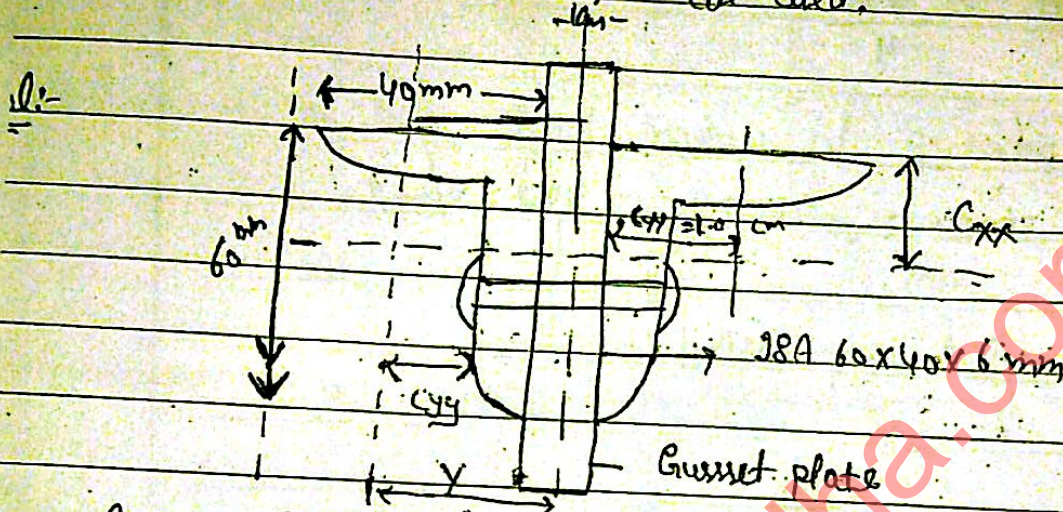 40mm
60 mm
Cyy = 1.0 cm
Cxx
ISA 60x40x6 mm
Cyy
Y
Gussset plate